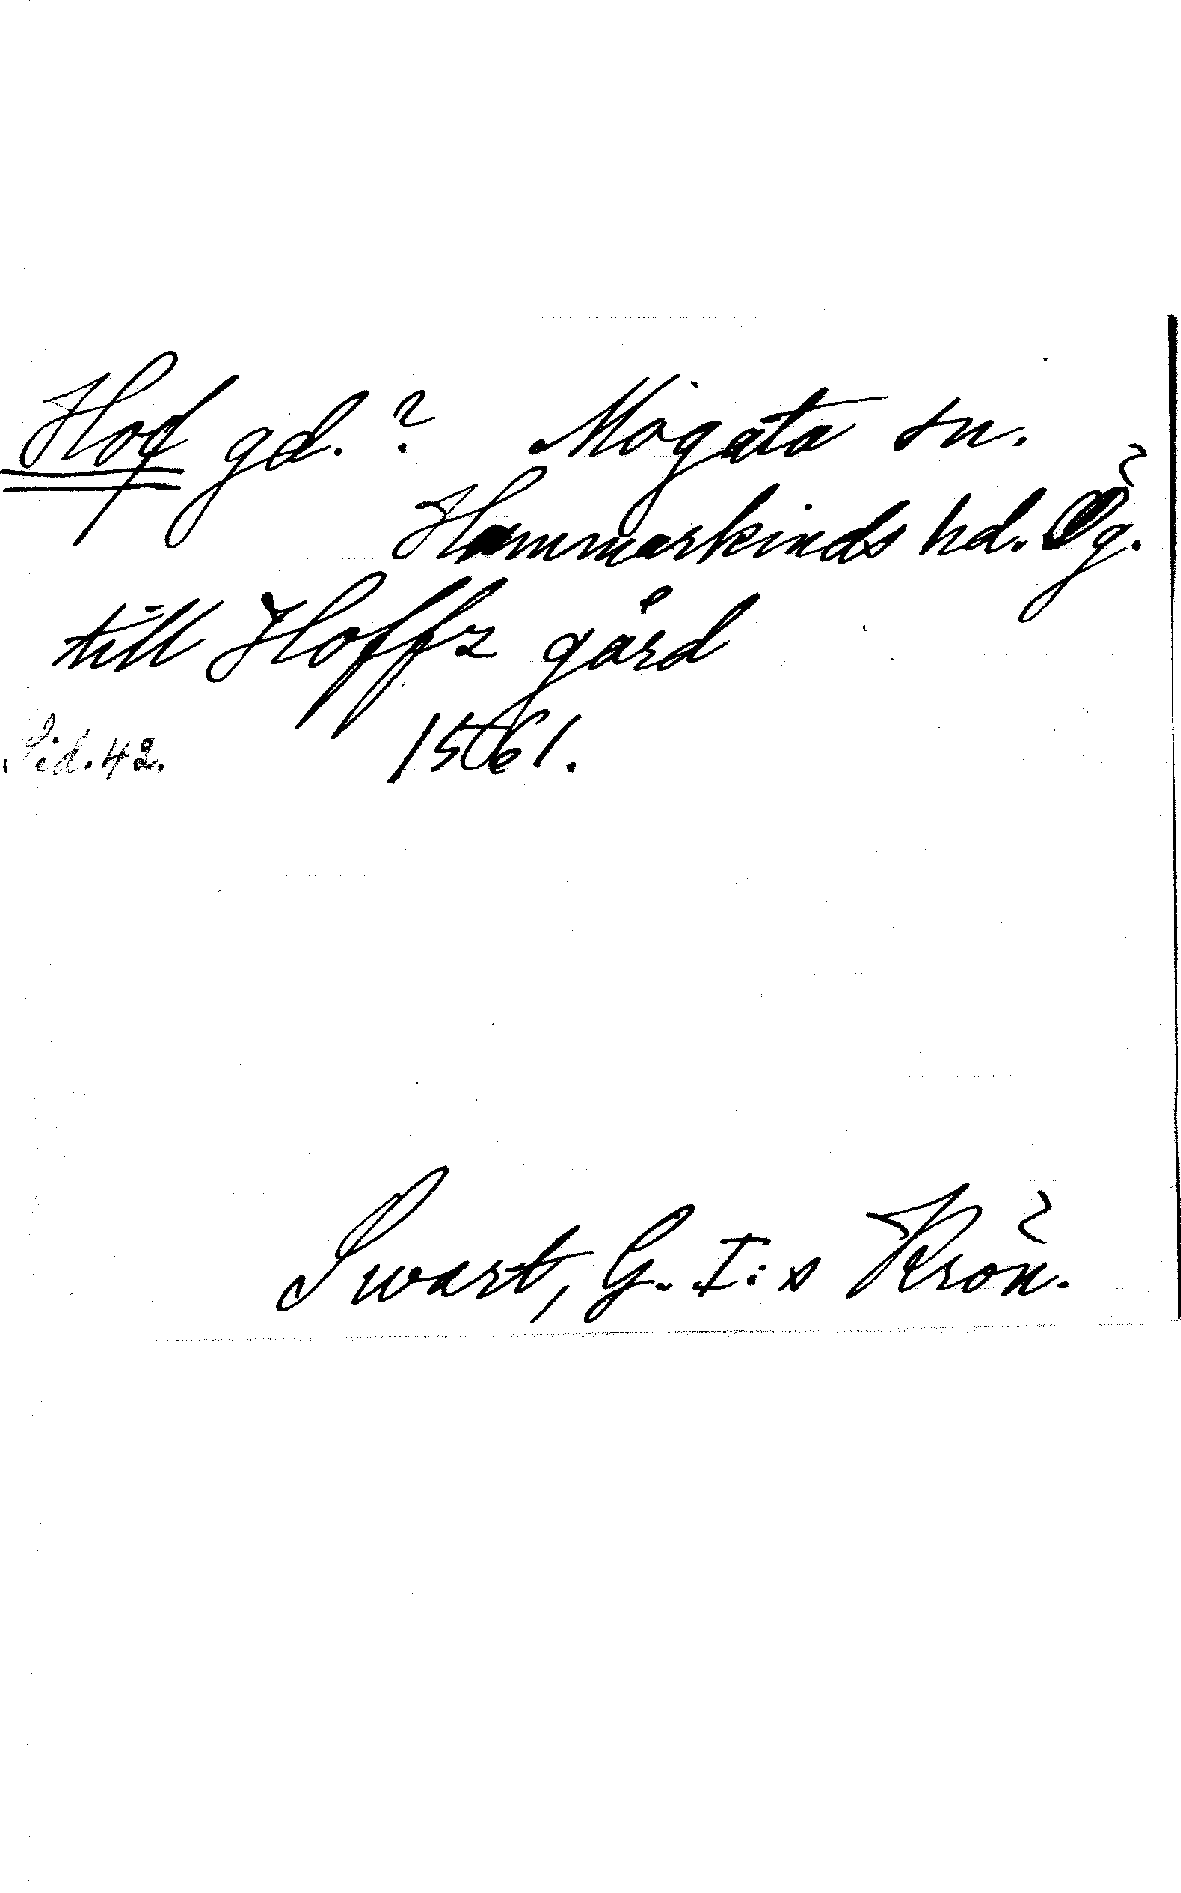 Hof gd.? Mogata sn.
Hammarkinds hd. Ög.
till Hoffz gård
Sid. 42. 1561.
Swart, G. I:s Krön.